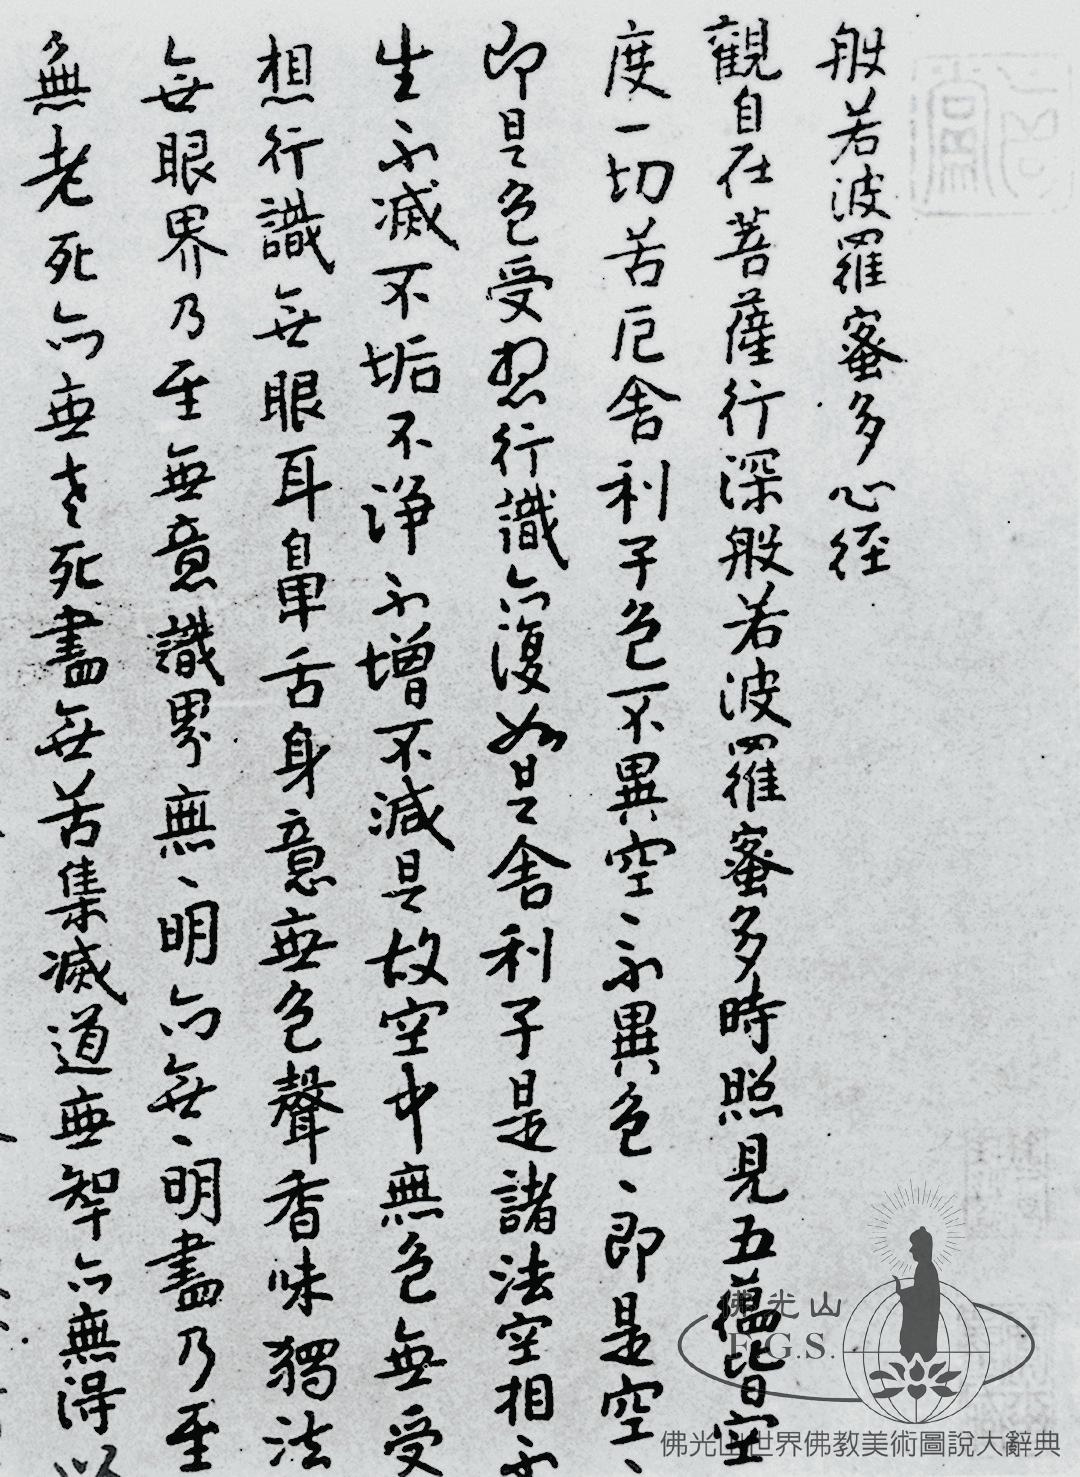 般若波羅蜜多心径
觀自在菩薩行深般若波羅蜜多時照見五蘊皆空
度一切苦厄舍利子色不異空、不異色、即是空、
即是色受想行識亦復如是舍利子是諸法空相不
生不滅不垢不淨不增不減是故空中無色無受
想行識無眼耳鼻舌身意無色聲香味觸法
無眼界乃至無意識界無、明亦無、明盡乃至
無老死亦無老死盡無苦集滅道無智亦無得以
佛光山
F.G.S.
佛光山世界佛教美術圖說大辭典